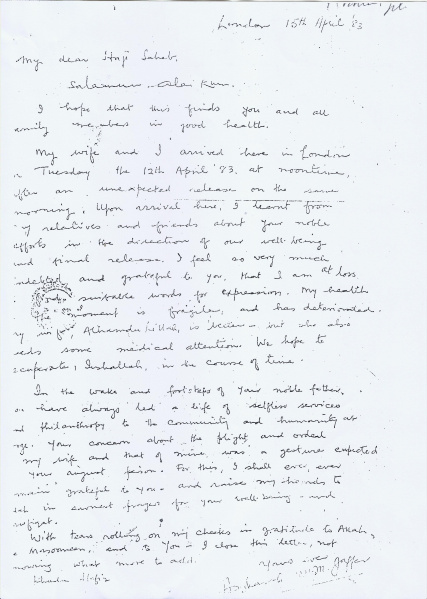 London 15th April '83
My dear Haji Saheb,
Salaamun Alai Kum.
I hope that this finds you and all
amily members in good health.
My wife and I arrived here in London
n Tuesday the 12th April '83, at noontime,
fter an unexpected release on the same
morning. Upon arrival here, I learnt from
y relatives and friends about your noble
fforts in the direction of our well-being
and final release. I feel so very much
ndebted and grateful to you, that I am at loss
suitable words for expression. My health
the moment is fragile, and has deteriorated.
y wife, Alhamdulillah, is better but she also
eeds some medical attention. We hope to
ecuperate, Inshallah, in the course of time.
In the wake and footsteps of your noble father,
ou have always led a life of selfless services
nd philanthropy to the community and humanity at
rge. Your concern about the plight and ordeal
my wife and that of mine, was a gesture expected
your august person. For this, I shall ever, ever
main grateful to you and raise my hands to
lah in earnest prayer for your well-being and
With tears rolling on my cheeks in gratitude to Allah,
Masoomeen, and to You - I close this letter, not
nowing what more to add.
Khuda Hafiz
Yours ever
Jaffer